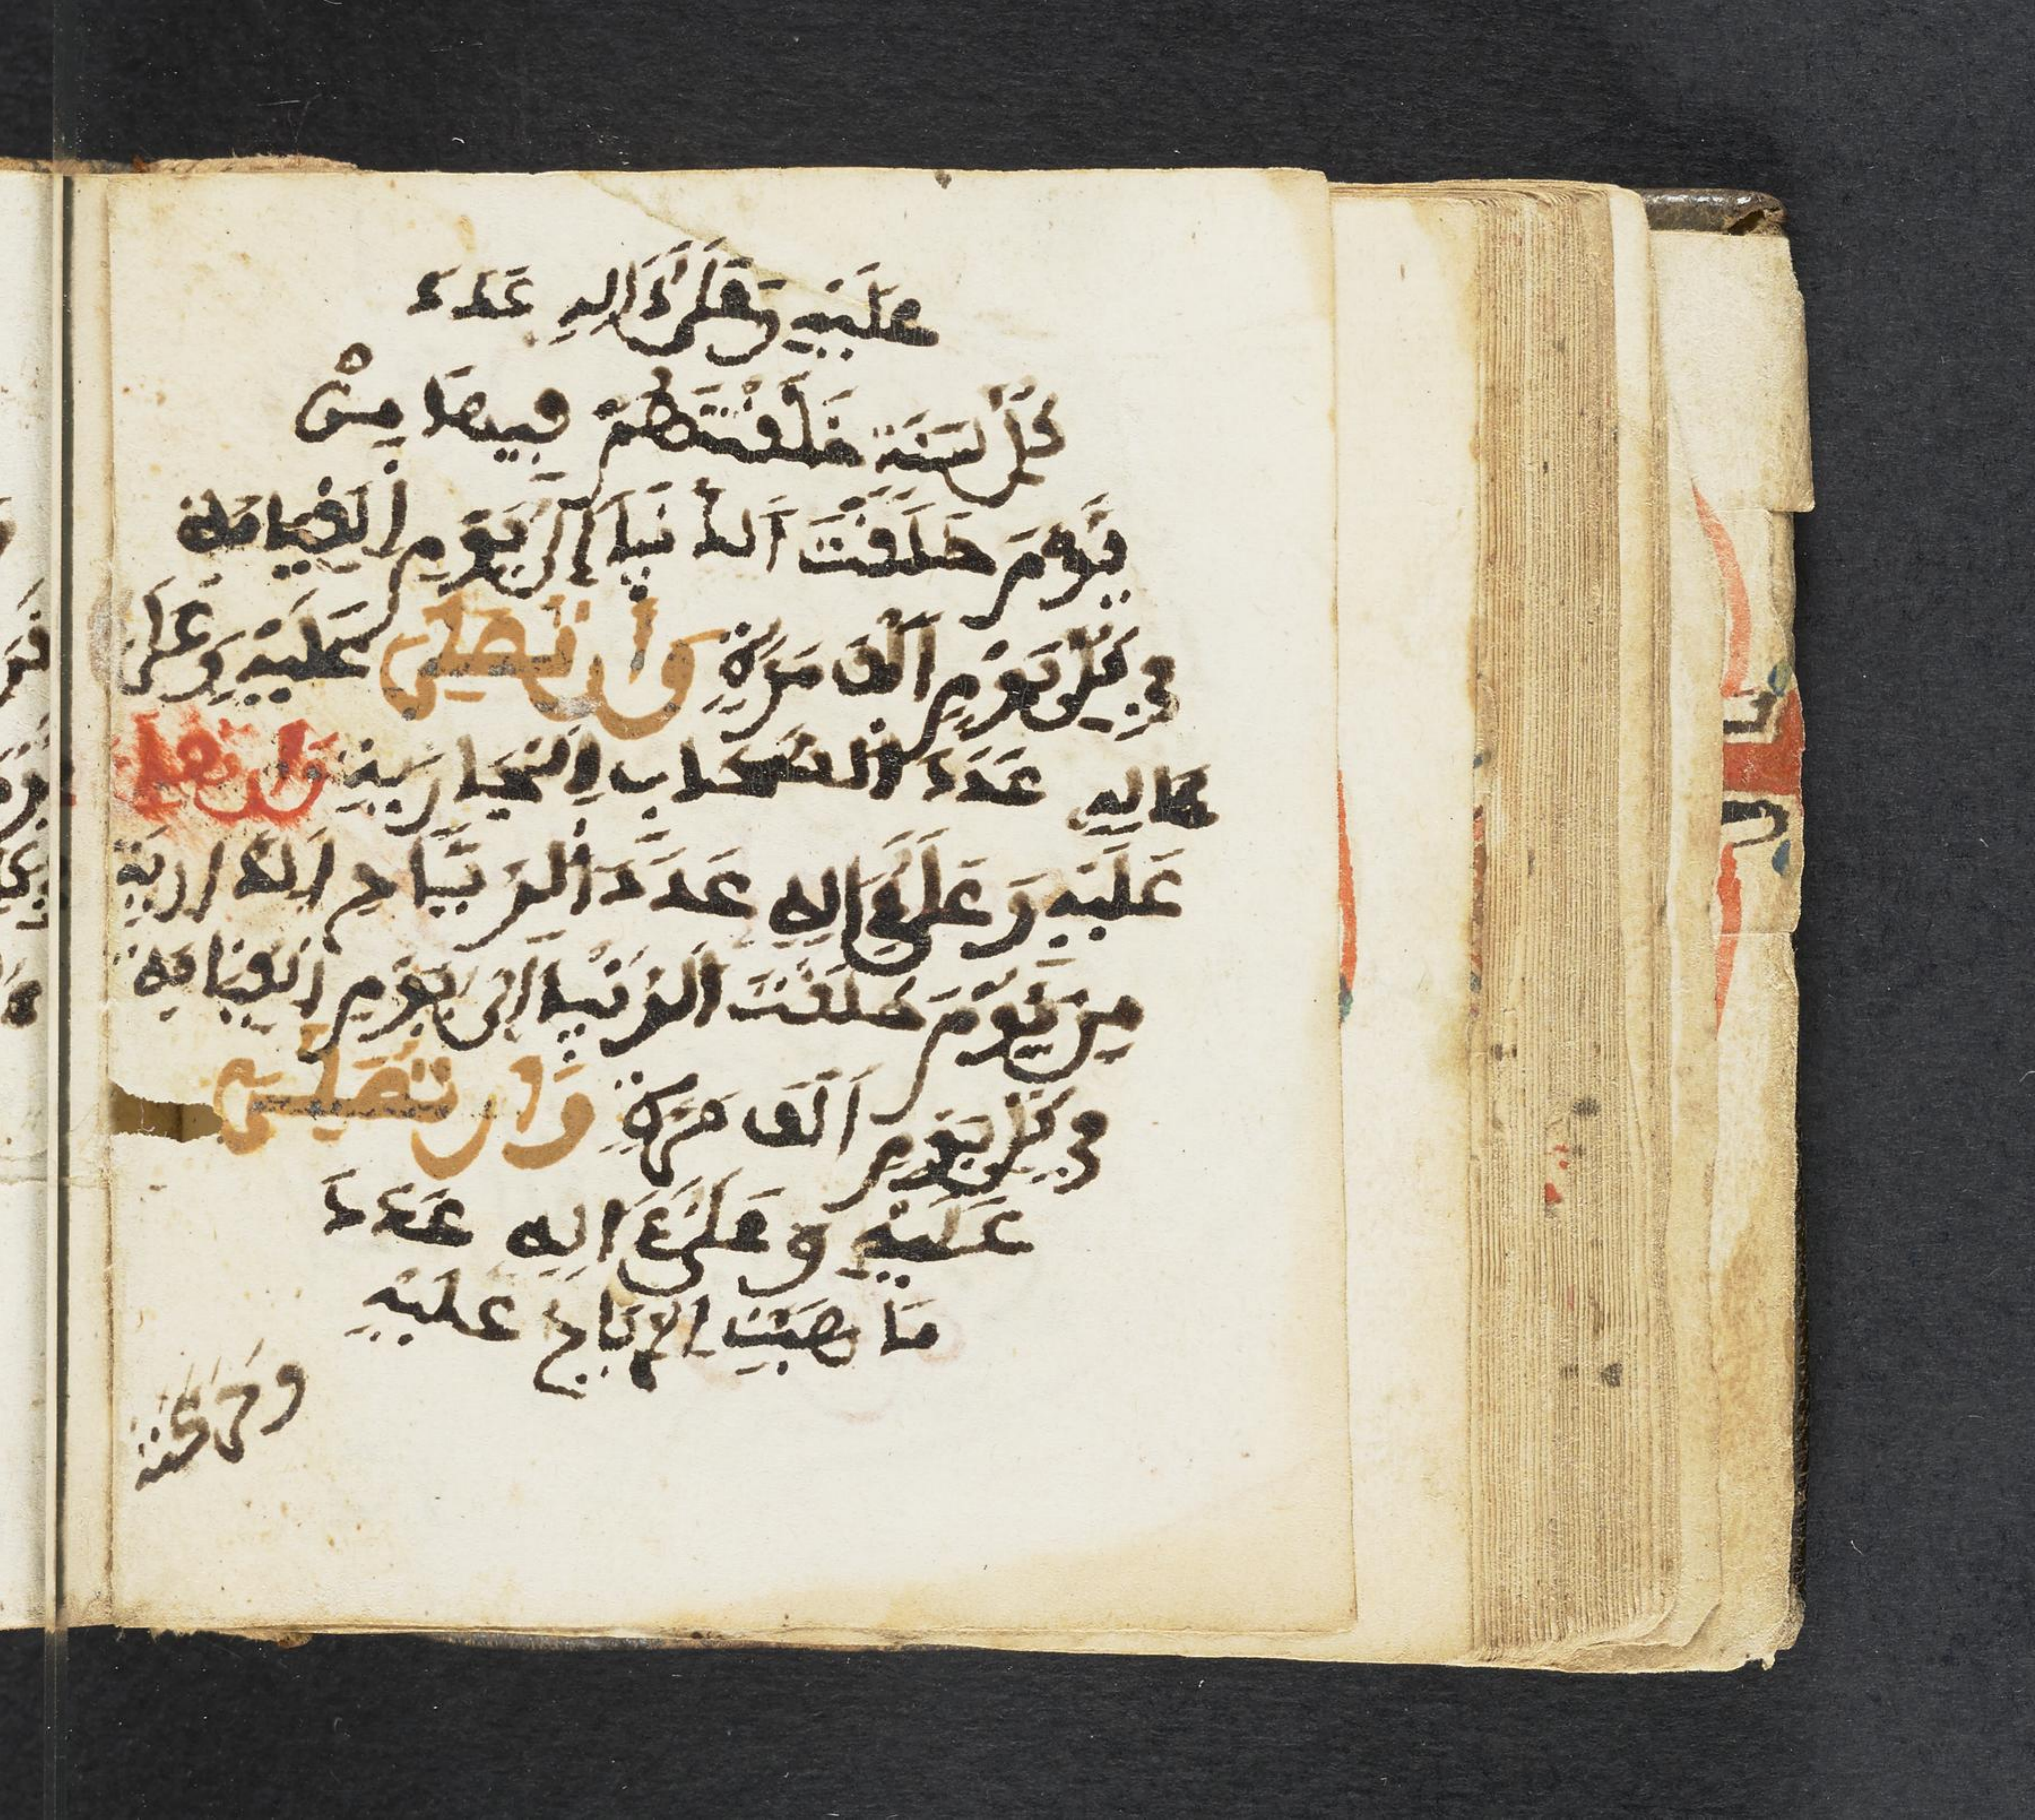 عليه وعلى ءاله عدد
كل سنة خلقتهم فيها من
يوم خلقت الدنيا إلى يوم القيامة
في كل يوم ألف مرة وأن تصلي عليه وعلى
ءاله عدد السحاب الجارية وأن تصلي
عليه وعلى ءاله عدد الرياح الذارية
من يوم خلقت الدنيا إلى يوم القيامة
في كل يوم ألف مرة وأن تصلي
عليه وعلى ءاله عدد
ما هبت الرياح عليه
وحركته